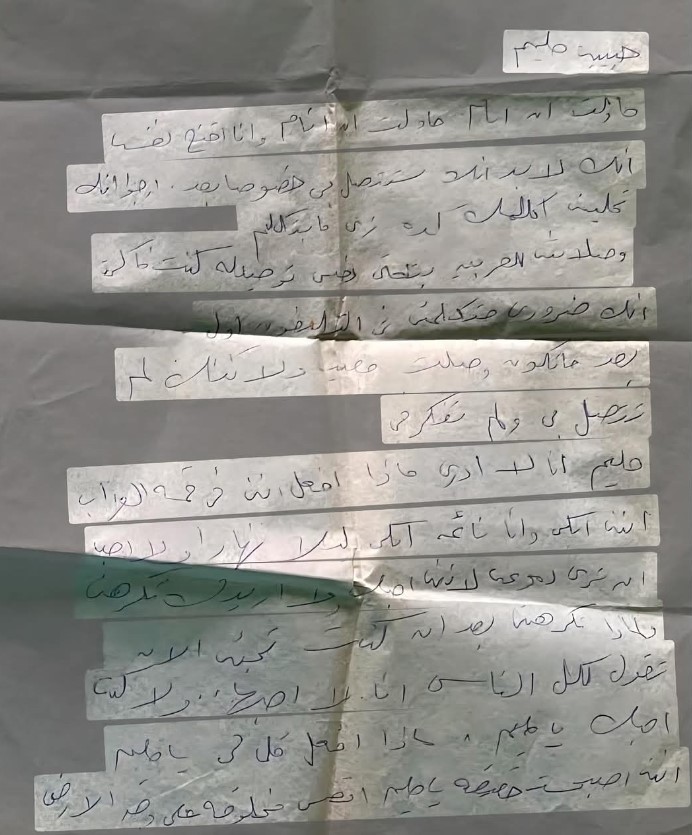 حبيبي حليم
حاولت ان انام حاولت ان انام وانا اقنع نفسي
انك لا بد انك ستتصل بي خصوصا بعد . ارجوا انك
تخليني اكلمك كده زي ما بتكلم
وصلتني العربيه بتفتحي توصيله كنت فاكرة
انك ضروري حتكلمني في التليفون اول
بعد ماتكون وصلت ولاكنك لم
تتصل بي ولم تفكر في
حليم انا لا ادري ماذا افعل انني في قمة العذاب
انني ابكي وانا نائمه ابكي ليلا نهارا ولا احب
ان ترى دموعي لانني احبك ولا اريدك تكرهني
ولماذا تكرهني بعد ان كنت تحبني الان
تقول لكل الناس انا لا احبها .. ولا كنت
احبك يا حليم ، ماذا افعل قل لي يا حليم
انني اصبحت حقيقه يا حليم اتعس مخلوقه على وجه الارض